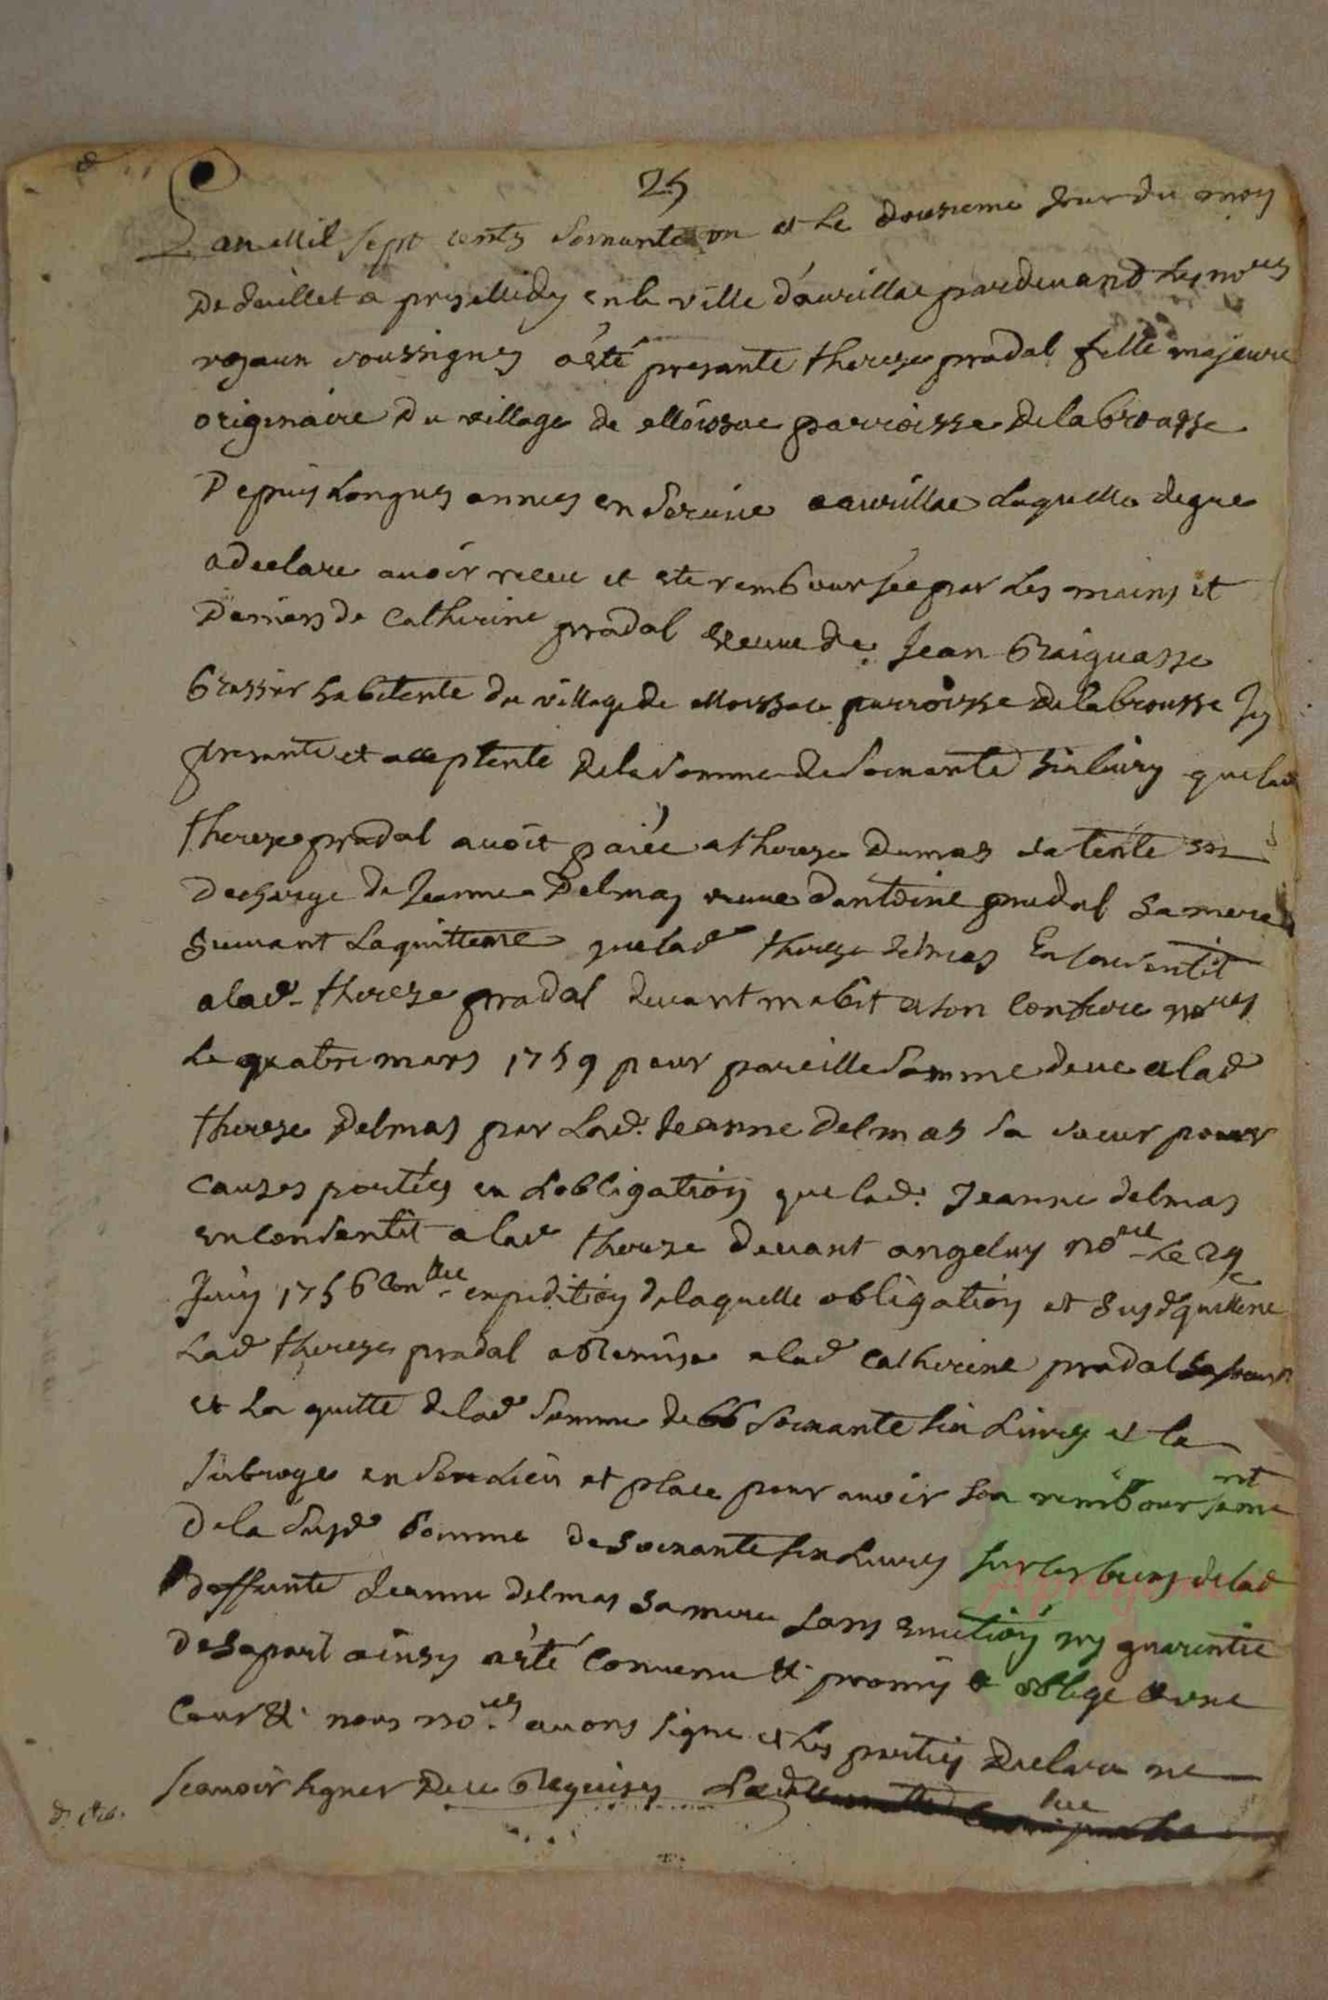 25
Lan Mil sept cents soixante un et le dousieme jour du moy
De Juillet a pres Midy en la ville d'aurillac pardevand les no.res
royaux soussignes a esté presante thereze pradal fille majeure
originaire Du village de Moissac parroisse de labrousse
Depuis longues annes en servise a aurillac laquelle de gre
a declare avoir receu et ete remboursée par les mains et
Deniers de Catherine pradal veuve de Jean Braiguasse
brassier habitente du village de Moissac parroisse de labrousse Jcy
presante et acceptente de la somme de soixante six livres que lad
thereze pradal avoit paiée a thereze Dumas sa tente en
decharge de Jeanne Delmas veuve d'antoine pradal sa mere
suivant la quittence que lad thereze delmas en consentit
a lad. thereze pradal devant mabit et son confrere no.res
le quatre mars 1759 pour pareille somme deue a lad
thereze Delmas par lad. Jeanne delmas sa soeur pour
causes porties en lobligation que lad. Jeanne delmas
en consentit a lad thereze devant angeluy no.re le 29
Juin 1756 con.lee expedition de laquelle obligation et susd quittence
lad thereze pradal a remise a lad Catherine pradal sa soeur
et la quitte de lad somme de 66 soixante six livres et la
subroge en son lieu et place pour avoir son remboursement
de la susd somme de soixante six livres sur les biens de lad
deffunte Jeanne delmas sa mere sans eviction ny guarentie
de sa part ainsy a esté convenu & promis & oblige & une
Cour & nous no.res avons signe et les parties declare ne
scavoir signer De ce Requises